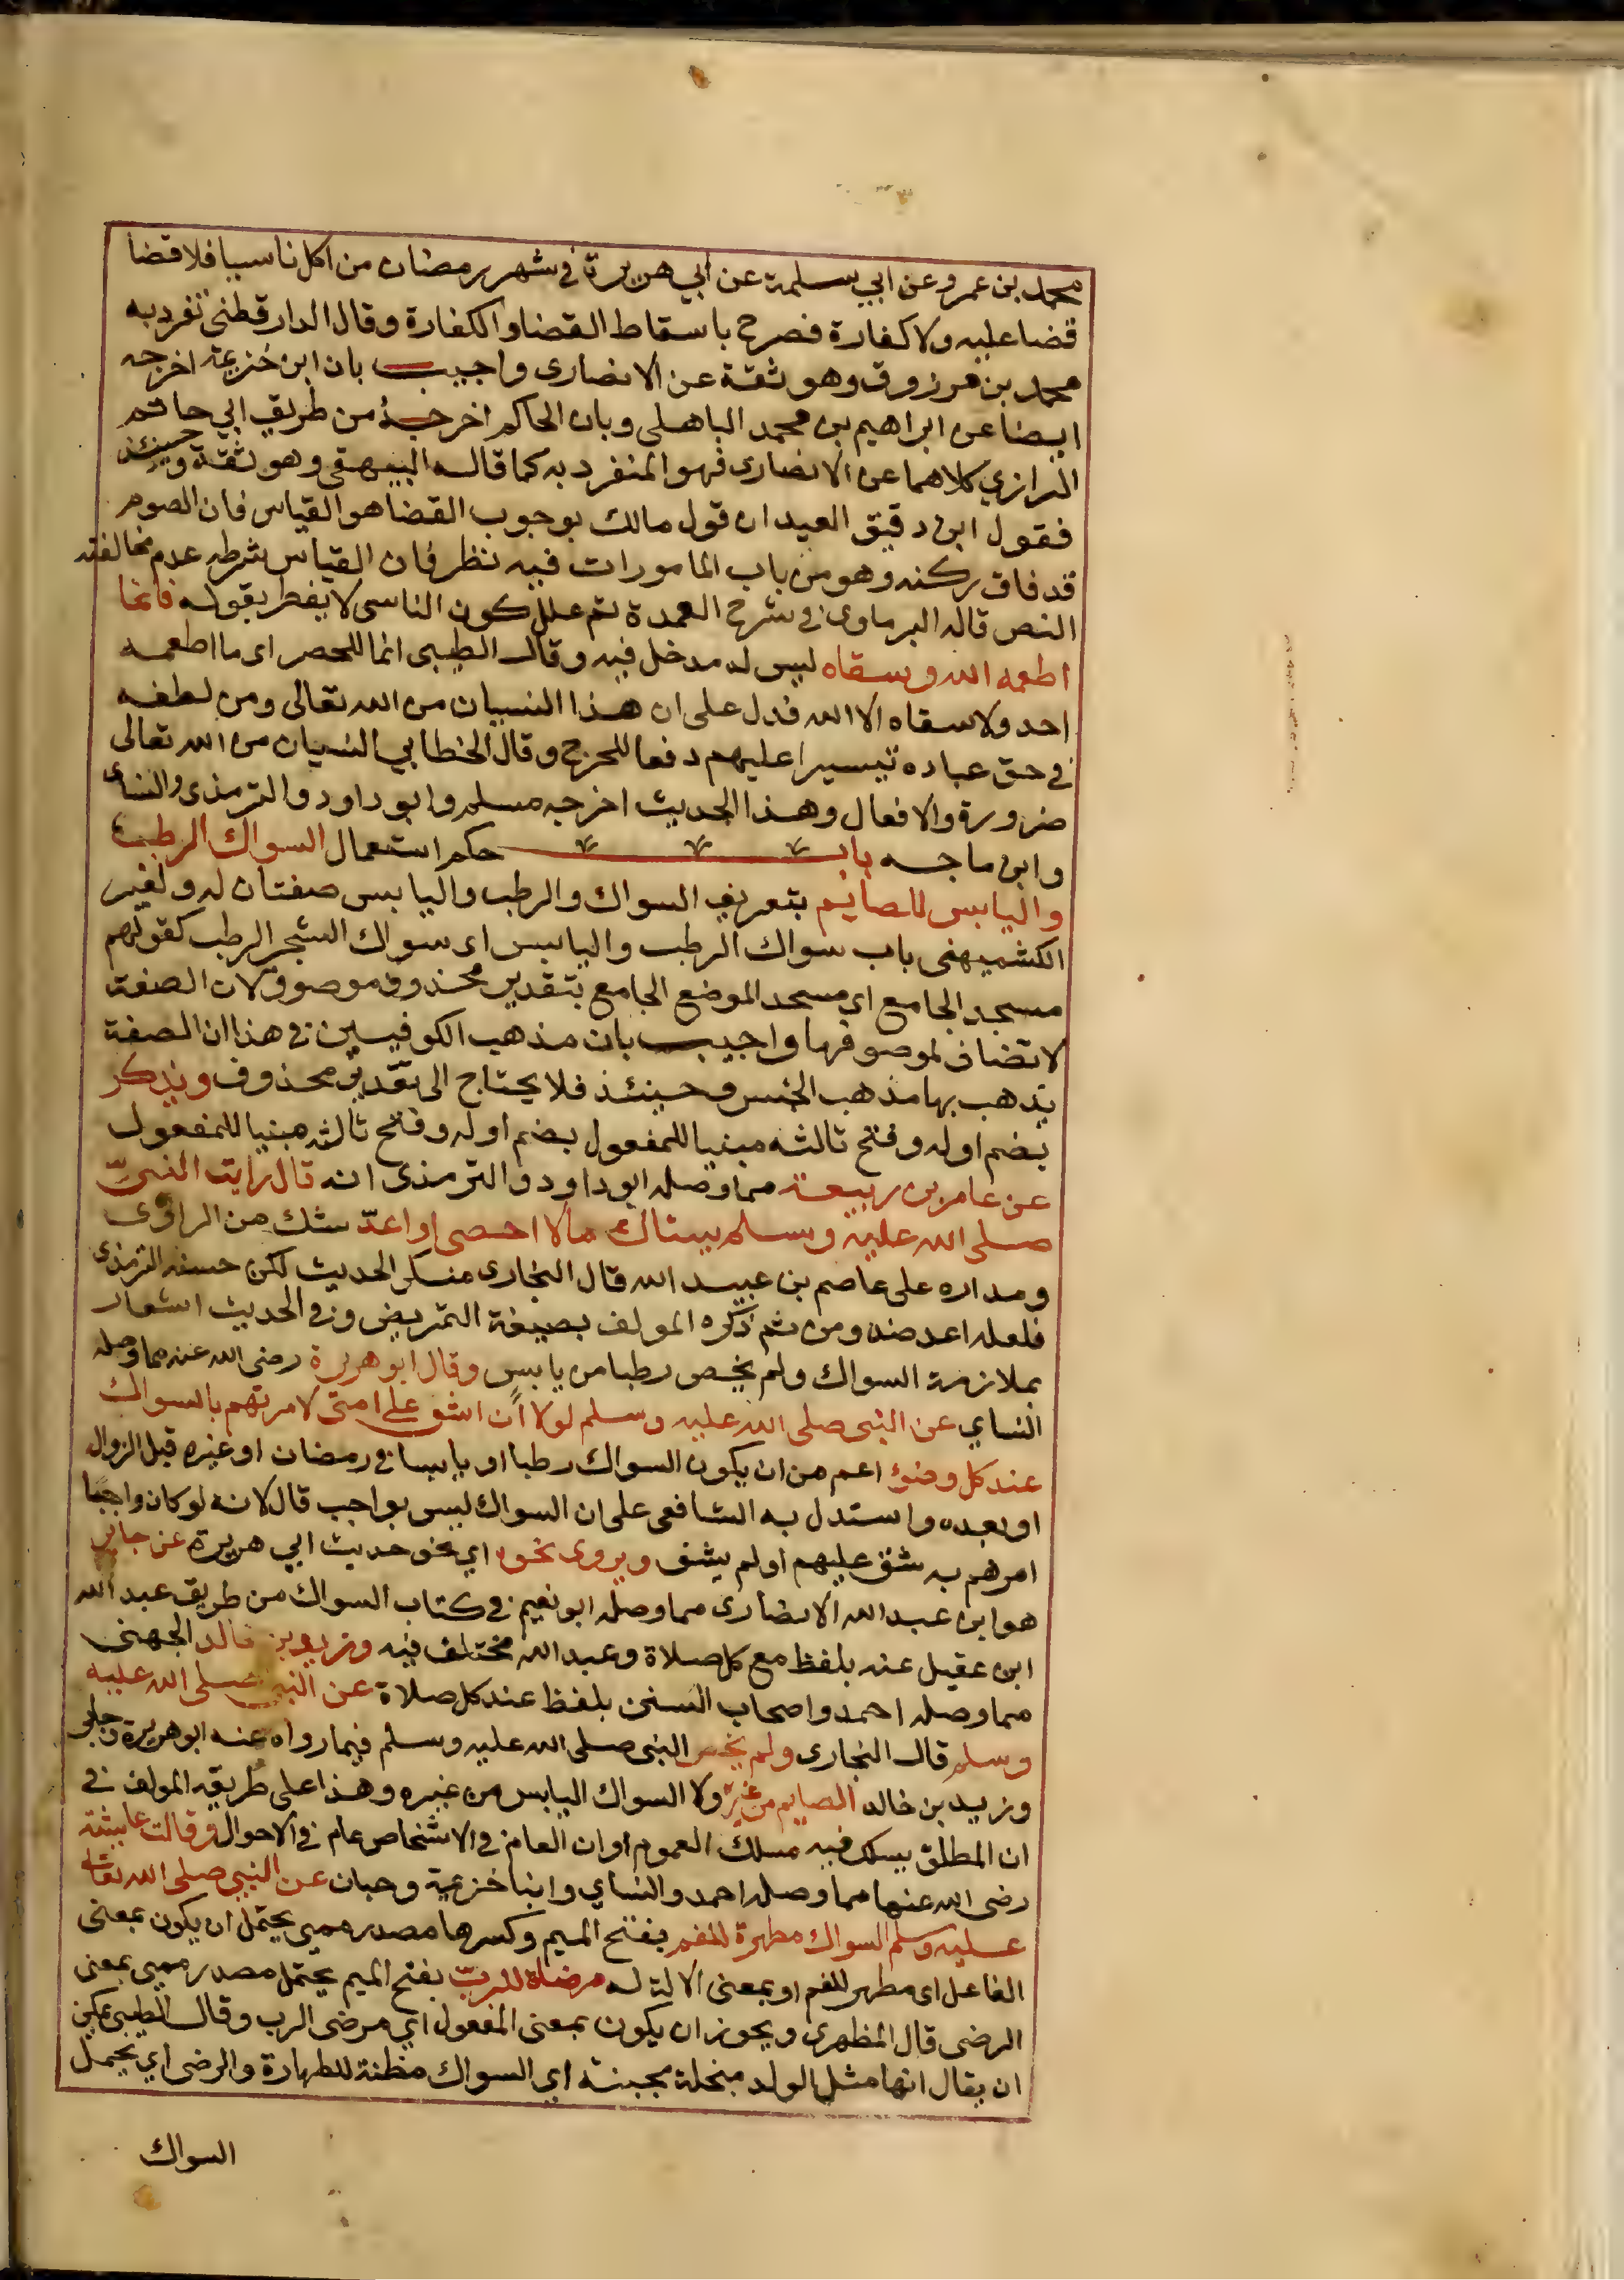 محمد بن عمرو عن ابي سلمة عن ابي هريرة في شهر رمضان من اكل ناسيا فلا قضا
قضا عليه ولا كفارة فصرح باسقاط القضا والكفارة وقال الدارقطني تفرد به
محمد بن مرزوق وهو ثقة عن الانصارى واجيب بان ابن خزيمة اخرجه
ايضا عن ابراهيم بن محمد الباهلى وبان الحاكم اخرجه من طريق ابي حاتم
الرازي كلاهما عن الانصارى فهو المنفرد به كما قاله البيهقى وهو ثقة وحينئذ
فقول ابن دقيق العيد ان قول مالك بوجوب القضا هو القياس فان الصوم
قد فات ركنه وهو من باب المامورات فيه نظر فان القياس شرطه عدم مخالفته
النص قاله البرماوى في شرح العمدة ثم علل كون الناسى لا يفطر بقوله فانما
اطعمه الله وسقاه ليس له مدخل فيه وقال الطيبى انما للحصر اى ما اطعمه
احد ولا سقاه الا الله فدل على ان هذا النسيان من الله تعالى ومن لطفه
في حق عباده تيسيرا عليهم دفعا للحرج وقال الخطابي النسيان من الله تعالى
ضرورة والافعال وهذا الحديث اخرجه مسلم وابو داود والترمذى والنساى
وابن ماجه باب حكم استعمال السواك الرطب
واليابس للصايم بتعريف السواك والرطب واليابس صفتان له ولغير
الكشميهنى باب سواك الرطب واليابس اى سواك الشجر الرطب كقولهم
مسجد الجامع اي مسجد الموضع الجامع بتقدير محذوف موصوف لان الصفة
لا تضاف لموصوفها واجيب بان مذهب الكوفيين في هذا ان الصفة
يذهب بها مذهب الجنس وحينئذ فلا يحتاج الى تقدير محذوف ويذكر
بضم اوله وفتح ثالثه مبنيا للمفعول بضم اوله وفتح ثالثه مبنيا للمفعول
عن عامر بن ربيعة مما وصله ابو داود والترمذى انه قال رايت النبىّ
صلى الله عليه وسلم يستاك مالا احصى او اعدّ شك من الراوى
ومداره على عاصم بن عبيد الله قال البخارى منكر الحديث لكن حسنه الترمذى
فلعله اعتضد ومن ثم ذكره المولف بصيغة التمريض وفي الحديث اشعار
بملازمة السواك ولم يخص رطبا من يابس وقال ابو هريرة رضى الله عنه مما وصله
النساي عن النبى صلى الله عليه وسلم لولا أن اشق على امتى لامرتهم بالسواك
عند كل وضوء اعم من ان يكون السواك رطبا او يابسا في رمضان او غيره قبل الزوال
او بعده واستدل به الشافعى على ان السواك ليس بواجب قال لانه لو كان واجبًا
امرهم به شق عليهم اولم يشق ويروى نحوه اي نحو حديث ابي هريرة عن جابر
هو ابن عبد الله الانصارى مما وصله ابو نعيم في كتاب السواك من طريق عبد الله
ابن عقيل عنه بلفظ مع كل صلاة وعبد الله مختلف فيه وزيد بن خالد الجهنى
مما وصله احمد واصحاب السنن بلفظ عند كل صلاة عن النبى صلى الله عليه
وسلم قال البخارى ولم يخص النبى صلى الله عليه وسلم فيما رواه عنه ابو هريرة وجابر
وزيد بن خالد الصايم من غيره ولا السواك اليابس من غيره وهذا على طريقة المولف في
ان المطلق يسلك فيه مسلك العموم او ان العام في الاشخاص عام في الاحوال وقالت عايشة
رضى الله عنها مما وصله احمد والنساي وابنا خزيمة وحبان عن النبي صلى الله تعالى
عليه وسلم السواك مطهرة للفم بفتح الميم وكسرها مصدر ميمي يحتمل ان يكون بمعنى
الفاعل اى مطهر للفم او بمعنى الالة له مرضاة للربّ بفتح الميم يحتمل مصدر ميمي بمعنى
الرضى قال المظهرى ويجوز ان يكون بمعنى المفعول اي مرضى الرب وقال الطيبى يمكن
ان يقال انها مثل الولد مبخلة مجبنة اي السواك مظنة للطهارة والرضى اي يحمل
السواك